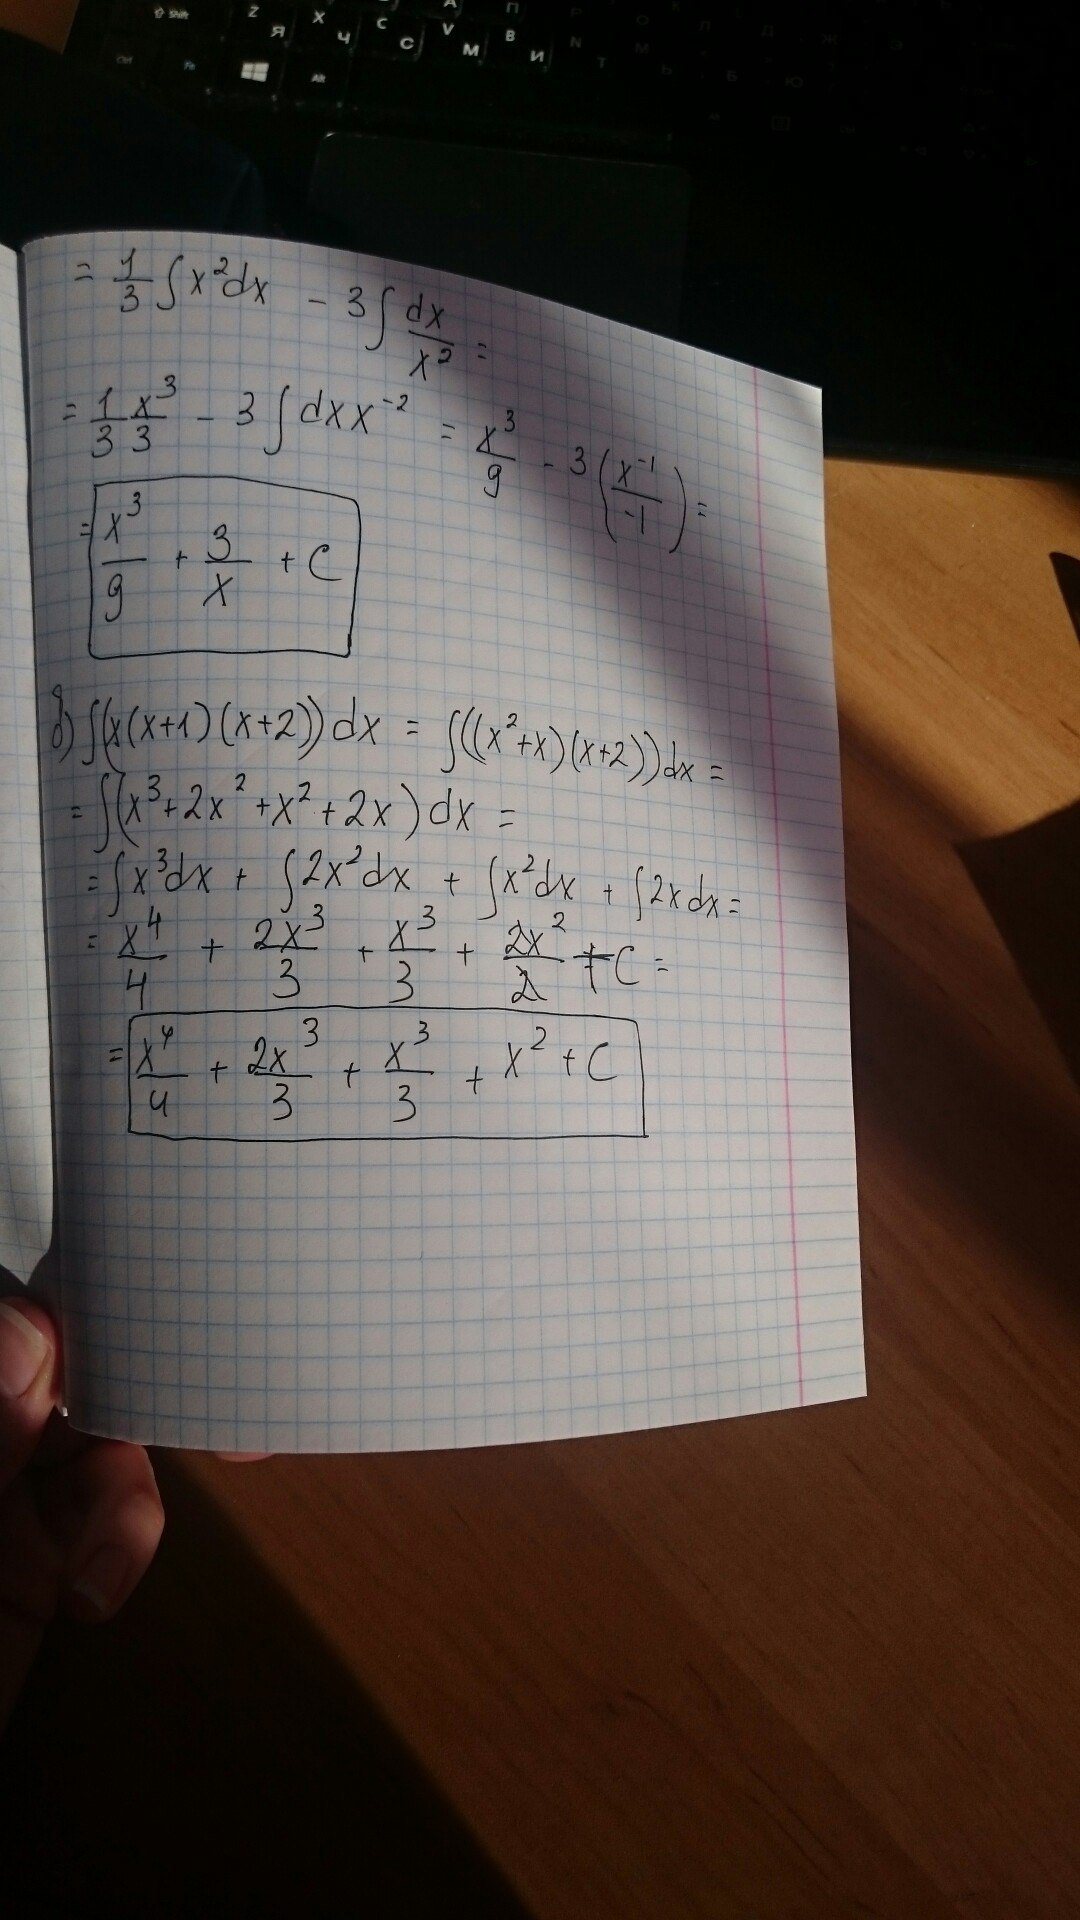 Z Я X Ч C С V М B И N Т
Alt
= 1/3 ∫x²dx - 3∫ dx/x² =
= 1/3 x³/3 - 3∫dxx⁻² = x³/9 - 3(x⁻¹/-1) =
= x³/9 + 3/x + C
∫(x(x+1)(x+2))dx = ∫((x²+x)(x+2))dx =
= ∫(x³+2x²+x²+2x)dx =
= ∫x³dx + ∫2x²dx + ∫x²dx + ∫2xdx =
= x⁴/4 + 2x³/3 + x³/3 + 2x²/2 + C =
= x⁴/4 + 2x³/3 + x³/3 + x² + C